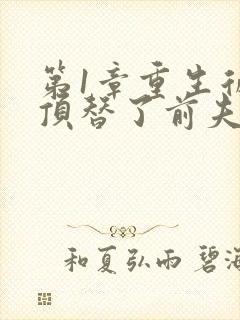 第1章重生
顶替了前夫
和夏弘雨 碧